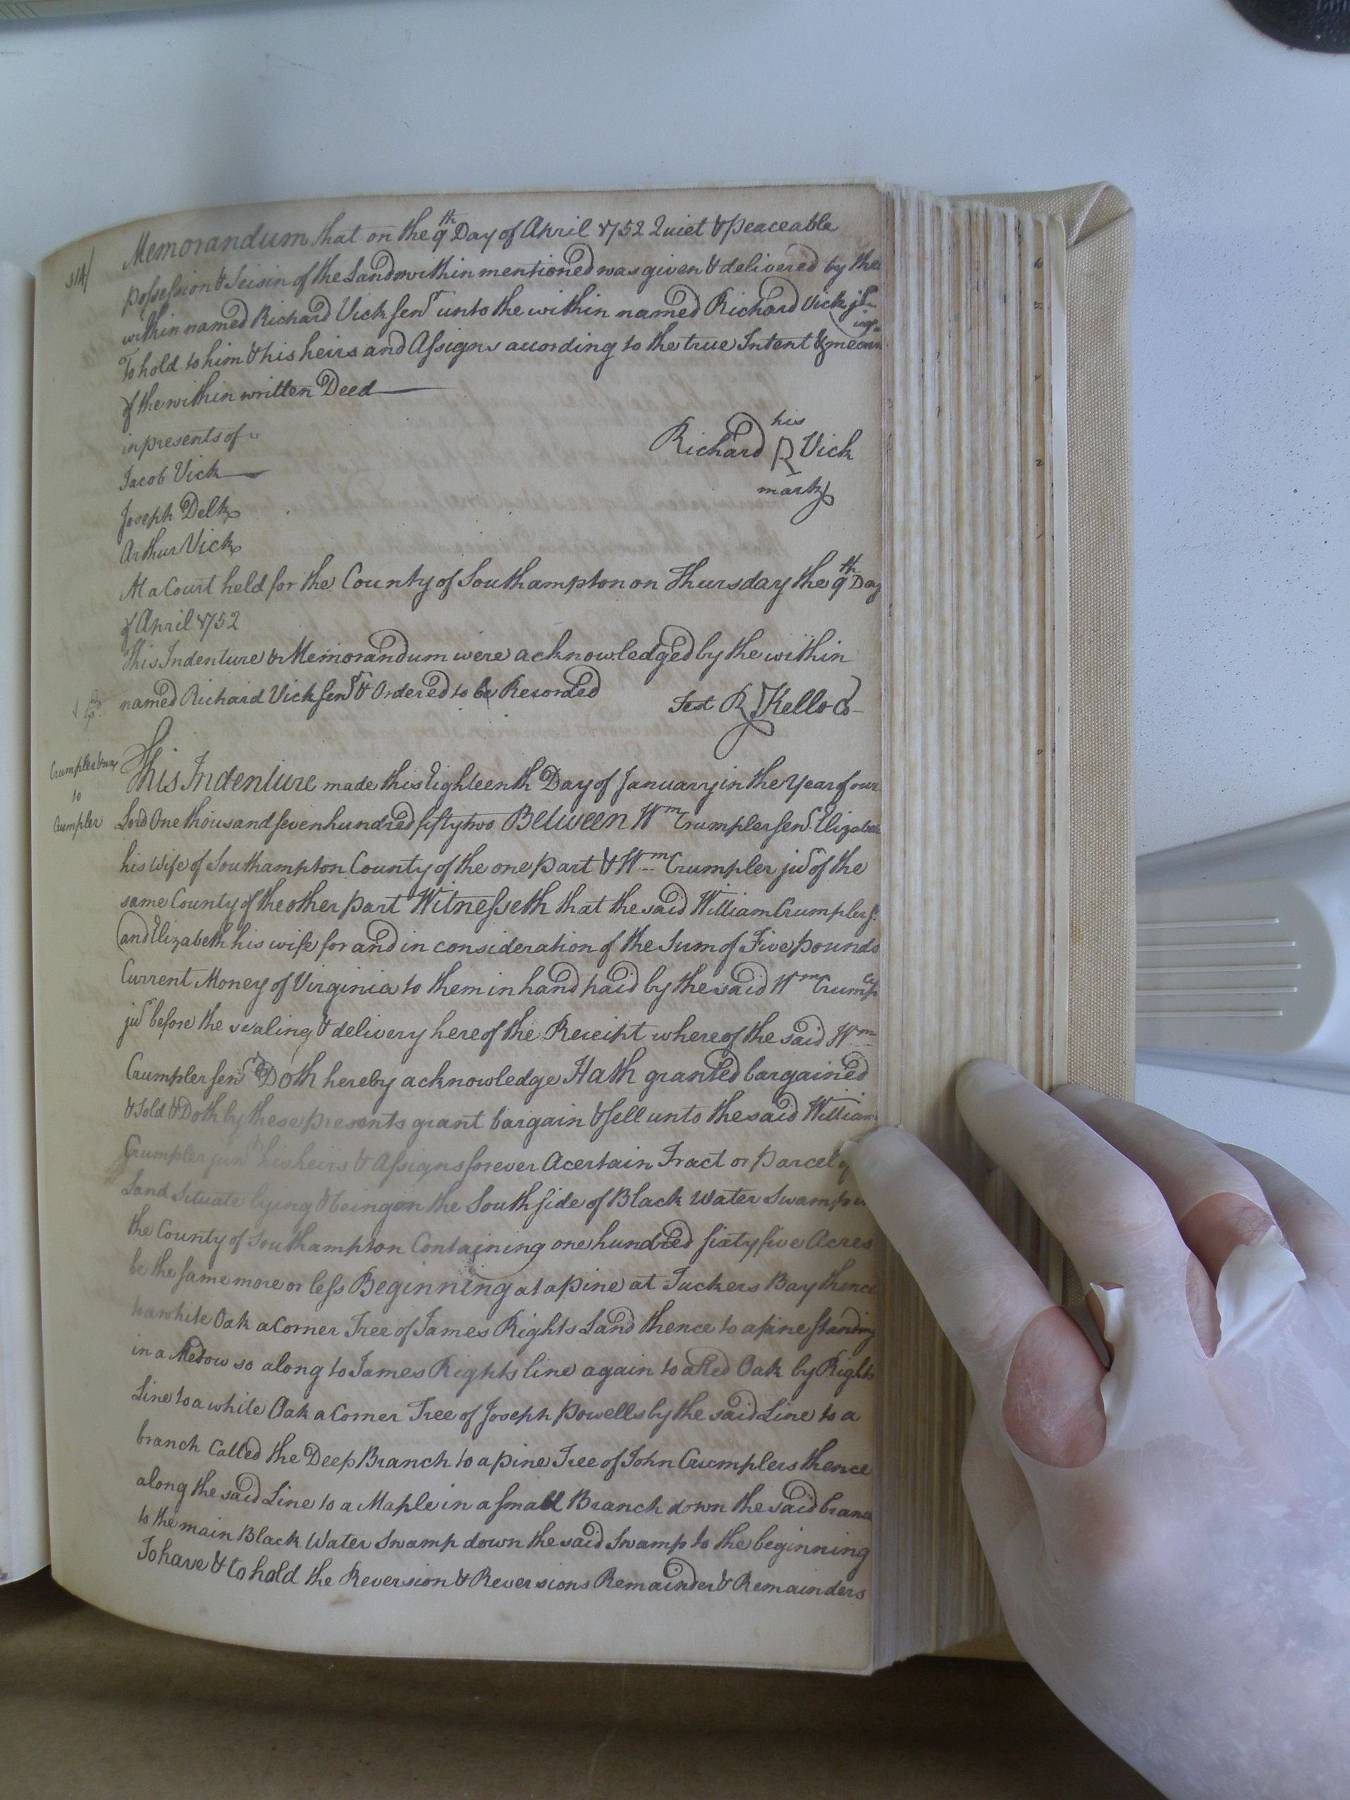 314/
Memorandum that on the 9th Day of April 1752 Quiet & peaceable
possession & Seisin of the Land within mentioned was given & delivered by the
within named Richard Vick senr unto the within named Richard Vick jr
To hold to him & his heirs and Assigns according to the true Intent & meaning
of the within written Deed
in presents of
his
Richard R Vick
mark
Jacob Vick
Joseph Delk
Arthur Vick
At a Court held for the County of Southampton on Thursday the 9th Day
of April 1752
This Indenture & Memorandum were acknowledged by the within
named Richard Vick senr & Ordered to be Recorded Test R Kello Co
Crumpler & ux
to
Crumpler
This Indenture made this Eighteenth Day of January in the Year of our
Lord One thousand seven hundred fifty two Between Wm Crumpler senr Elizabeth
his Wife of Southampton County of the one part & Wm Crumpler jur of the
same County of the other part Witnesseth that the said William Crumpler s
and Elizabeth his wife for and in consideration of the Sum of Five pounds
Current Money of Virginia to them in hand paid by the said Wm Crumpler
jur before the sealing & delivery here of the Receipt where of the said Wm
Crumpler senr Doth hereby acknowledge Hath granted bargained
& Sold & Doth by these presents grant bargain & sell unto the said William
Crumpler jun his heirs & Assigns forever A certain Tract or parcel of
Land Situate lying & being on the South side of Black Water Swamp in
the County of Southampton Containing one hundred sixty five Acres
be the same more or less Beginning at a pine at Tuckers Bay thence
to a white Oak a Corner Tree of James Rights Land thence to a pine standing
in a Medow so along to James Rights line again to a Red Oak by Rights
Line to a white Oak a Corner Tree of Joseph Powells by the said Line to a
branch Called the Deep Branch to a pine Tree of John Crumplers thence
along the said Line to a Maple in a small Branch down the said branch
to the main Black Water Swamp down the said Swamp to the beginning
To have & to hold the Reversion & Reversions Remainder & Remainders